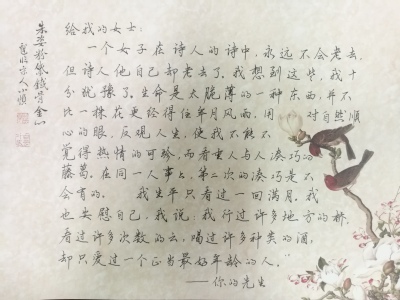 给我的女士：
一个女子在诗人的诗中，永远不会老去，
但诗人他自己却老去了。我想到这些，我十
分犹豫了。生命是太脆薄的一种东西，并不
比一株花更经得住年月风雨，用对自然倾
心的眼，反观人生，使我不能不
觉得热情的可珍，而看重人与人凑巧的
藤葛。在同一人事上，第二次的凑巧是不
会有的。我生平只看过一回满月。我
也安慰自己，我说：我行过许多地方的桥，
看过许多次数的云，喝过许多种类的酒，
却只爱过一个正当最好年龄的人。”
——你的先生